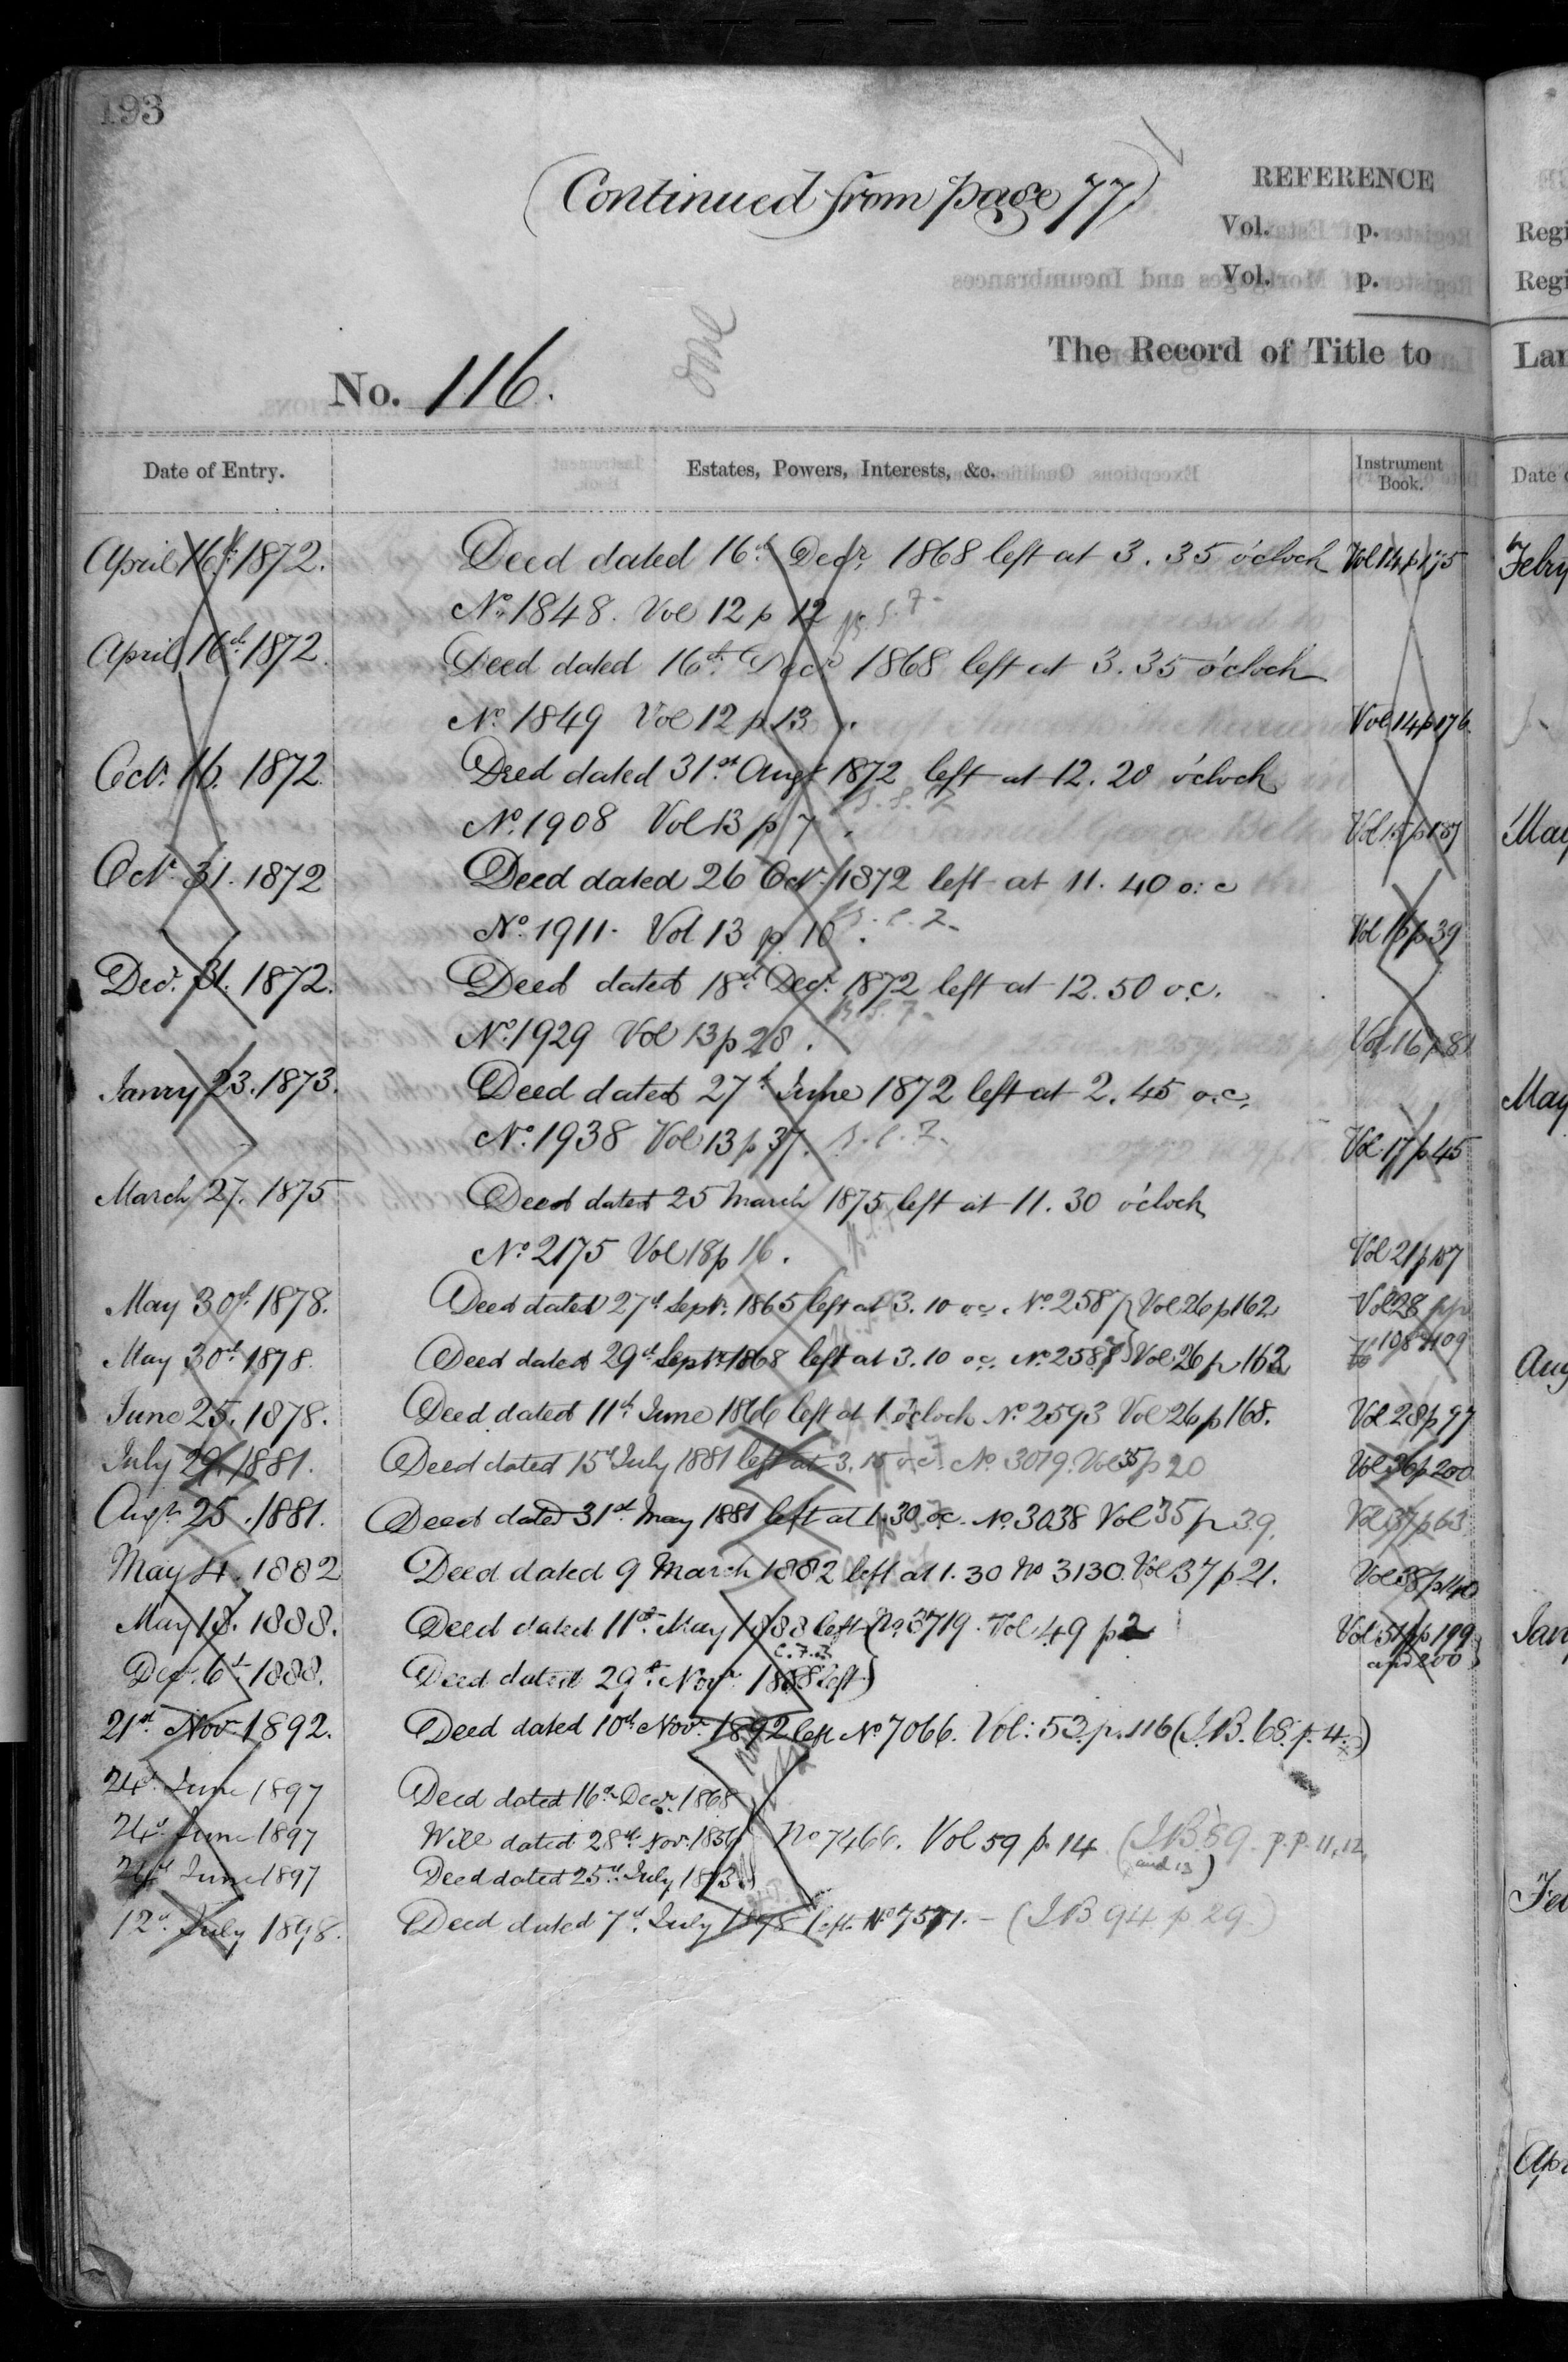 193
(Continued from page 77)
REFERENCE
Vol. p.
Vol. p.
The Record of Title to
No. 116.
Date of Entry. Estates, Powers, Interests, &c. Instrument Book.
April 16th 1872. Deed dated 16th Decr. 1868 left at 3.35 o'clock Vol 14 p 175
No. 1848. Vol 12 p 12
April 16th 1872. Deed dated 16th Decr 1868 left at 3.35 o'clock
No. 1849 Vol 12 p 13. Vol 14 p 176
Octr. 16. 1872. Deed dated 31st Augt 1872 left at 12.20 o'clock
No. 1908 Vol 13 p 7. Vol 15 p 187
Octr. 31. 1872 Deed dated 26 Octr. 1872 left at 11.40 o:c
No. 1911. Vol 13 p 10. Vol 16 p 39
Decr. 31. 1872. Deed dated 18th Decr. 1872 left at 12.50 o.c.
No. 1929 Vol 13 p 28. Vol 16 p 81
Janry 23. 1873. Deed dated 27th June 1872 left at 2.45 o.c.
No. 1938 Vol 13 p 37. Vol. 17 p 45
March 27. 1875 Deed dated 25 March 1875 left at 11.30 o'clock
No. 2175 Vol 18 p 16. Vol 21 p 187
May 30th 1878. Deed dated 27th Septr. 1865 left at 3.10 o.c. No. 2587 } Vol 26 p 162 Vol 28 pp
May 30th 1878. Deed dated 29th Septr. 1868 left at 3.10 o.c. No. 2587 } Vol 26 p 162 108 & 109
June 25. 1878. Deed dated 11th June 1866 left at 1 o'clock No. 2593 Vol 26 p 168. Vol 28 p 97
July 29. 1881. Deed dated 15th July 1881 left at 3.15 o.c. No. 3019. Vol 35 p 20 Vol 36 p 200
Augt. 25. 1881. Deed dated 31st May 1881 left at 1.30 o.c. No. 3038 Vol 35 p 39. Vol 37 p 63
May 4. 1882 Deed dated 9 March 1882 left at 1.30 No 3130. Vol 37 p 21. Vol 38 p 140
May 18. 1888. Deed dated 11th May 1888 left { No. 3719. Vol 49 p 2 Vol 51 pp 199
and 200
Decr. 6th 1888. Deed dated 29th Novr. 1888 left }
21st Novr 1892. Deed dated 10th Novr. 1892 left No 7066. Vol: 53. p. 116 (I.B. 68. p. 4.)
24th June 1897 Deed dated 16th Decr. 1868
24th June 1897 Will dated 28th Novr. 1856 No 7466. Vol 59 p. 14 (I.B. 89. p.p. 11, 12,
and 13)
24th June 1897 Deed dated 25th July 1873
12th July 1898. Deed dated 7th July 1898 left No 7571. - (I B 94 p 29.)